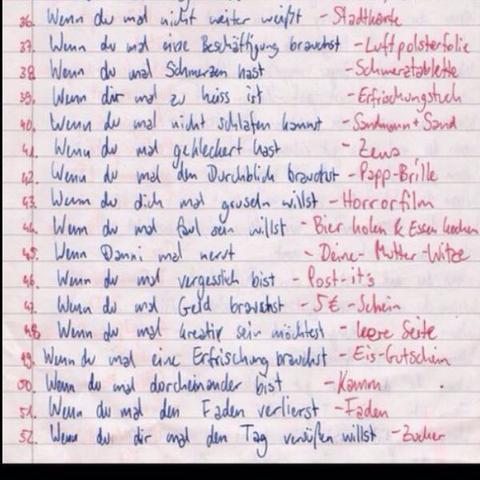 36. Wenn du mal nicht weiter weißt - Stadtkarte
37. Wenn du mal eine Beschäftigung brauchst - Luftpolsterfolie
38. Wenn du mal Schmerzen hast - Schmerztablette
39. Wenn dir mal zu heiss ist - Erfrischungstuch
40. Wenn du mal nicht schlafen kannst - Sandmann + Sand
41. Wenn du mal gekleckert hast - Zewa
42. Wenn du mal den Durchblick brauchst - Papp-Brille
43. Wenn du dich mal gruseln willst - Horrorfilm
44. Wenn du mal faul sein willst - Bier holen & Essen kochen
45. Wenn Danni mal nervt - Deine-Mutter-Witze
46. Wenn du mal vergesslich bist - Post-it's
47. Wenn du mal Geld brauchst - 5€-Schein
48 Wenn du mal kreativ sein möchtest - leere Seite
49. Wenn du mal eine Erfrischung brauchst - Eis-Gutschein
50. Wenn du mal durcheinander bist - Kamm
51. Wenn du mal den Faden verlierst - Faden
52. Wenn du dir mal den Tag versüßen willst - Zucker